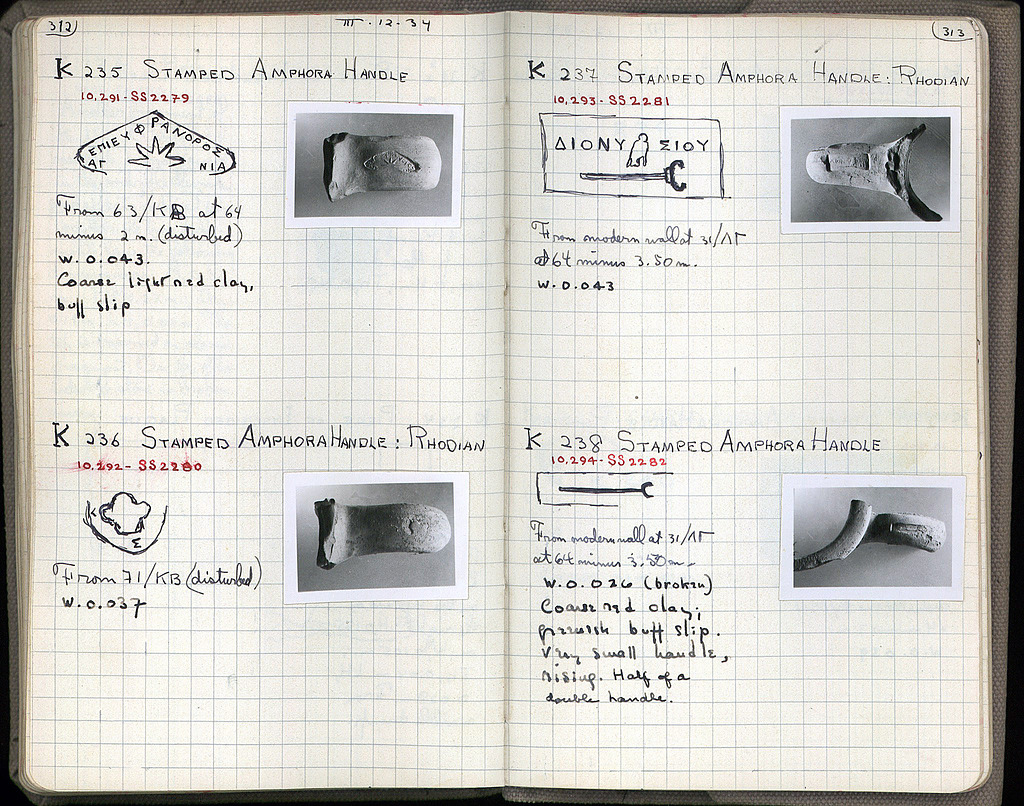 312
III·12·34
K 235 STAMPED AMPHORA HANDLE
10,291-SS2279
ΕΠΙΕΥΦΡΑΝΟΡΟΣ
ΑΓ ΝΙΑ
From 63/KB at 64
minus 2 m. (disturbed)
W. 0.043.
Coarse light red clay,
buff slip
K 236 STAMPED AMPHORA HANDLE: RHODIAN
10,292-SS2280
K Σ
From 71/KB (disturbed)
W. 0.037
313
K 237 STAMPED AMPHORA HANDLE: RHODIAN
10,293-SS2281
ΔΙΟΝΥ ΣΙΟΥ
From modern wall at 31/ΛΓ
at 64 minus 3.50 m.
W. 0.043
K 238 STAMPED AMPHORA HANDLE
10,294-SS2282
From modern wall at 31/ΛΓ
at 64 minus 3.50 m.
W. 0.026 (broken)
Coarse red clay;
greenish buff slip.
Very small handle,
rising. Half of a
double handle.